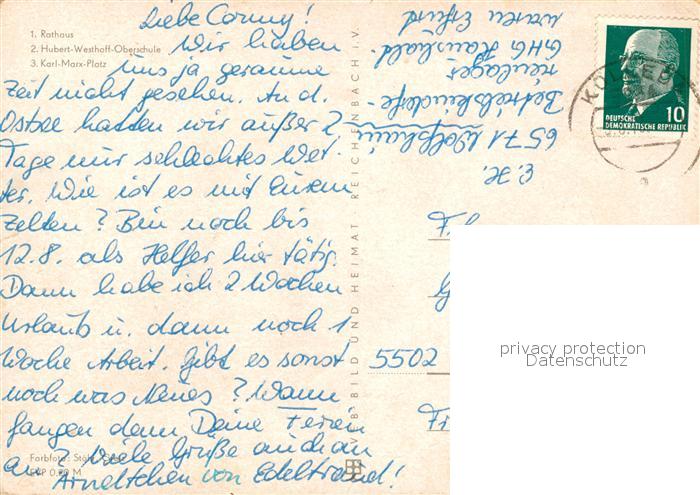 Liebe Corny!
1. Rathaus
2. Hubert-Westhoff-Oberschule
3. Karl-Marx-Platz
Wir haben
uns ja geraume
Zeit nicht gesehen. An d.
Ostsee hatten wir außer 2
Tage nur schlechtes Wet-
ter. Wie ist es mit Eurem
Zelten? Bin noch bis
12.8. als Helfer hier tätig.
Dann habe ich 2 Wochen
Urlaub u. dann noch 1
Woche Arbeit. Gibt es sonst
noch was Neues? Wann
fangen denn Deine Ferien
an? Viele Grüße auch an
Arneltchen von Edeltraud!
Farbfoto:
EVP 0,20 M
VEB BILD UND HEIMAT REICHENBACH I.V.
E. H.
6571
Betriebskinderfe-
rienlager
GHG Haushalt-
waren Erfurt
DEUTSCHE
DEMOKRATISCHE REPUBLIK
10
5502
privacy protection
Datenschutz